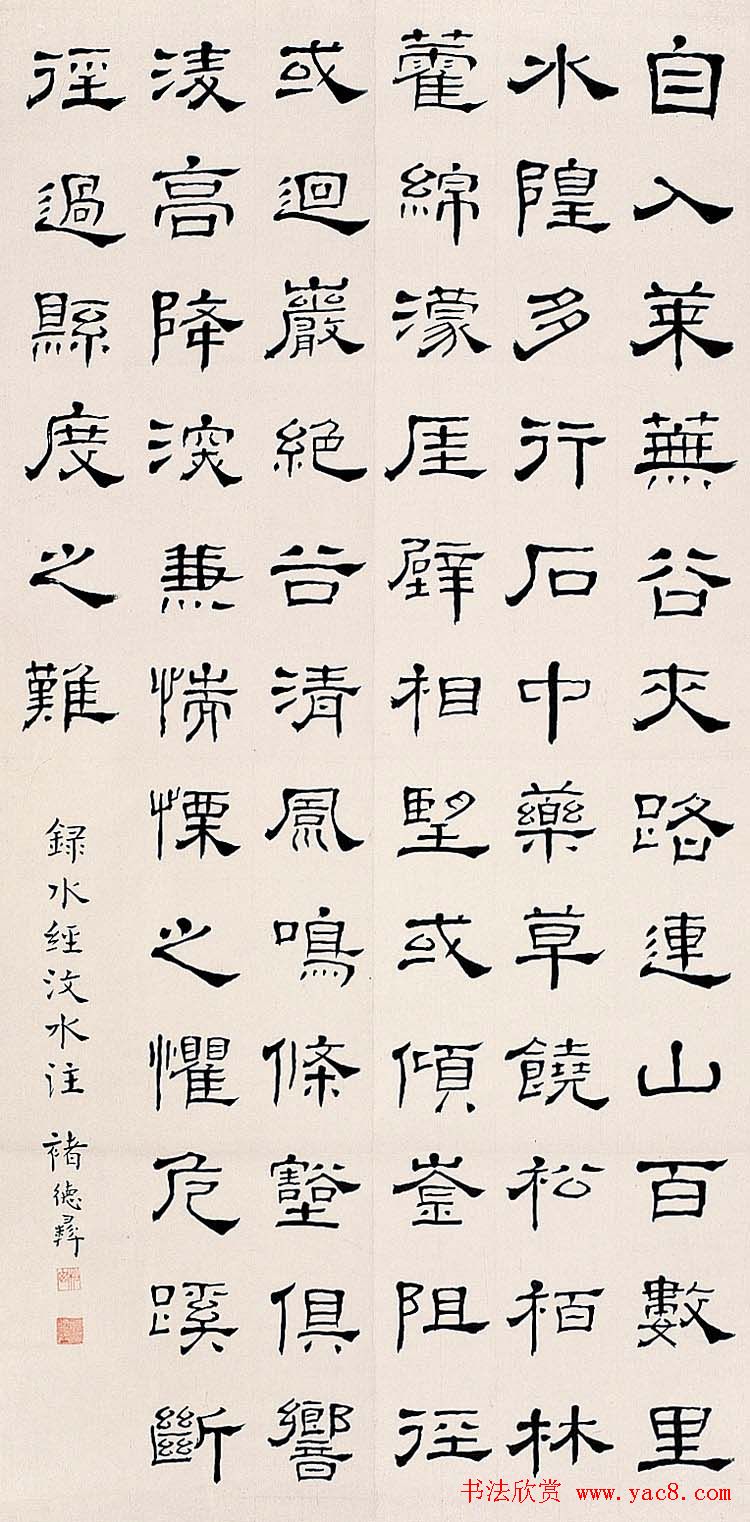 自入萊蕪谷夾路連山百數里
水隍多行石中藥草饒松栢林
藿綿濛厓壁相望或傾崟阻徑
或迴巖絕谷清風鳴條壑俱響
淩高降深兼惴慄之懼危蹊斷
徑過縣度之難
録水經汶水注 褚德彝
书法欣赏 www.yac8.com